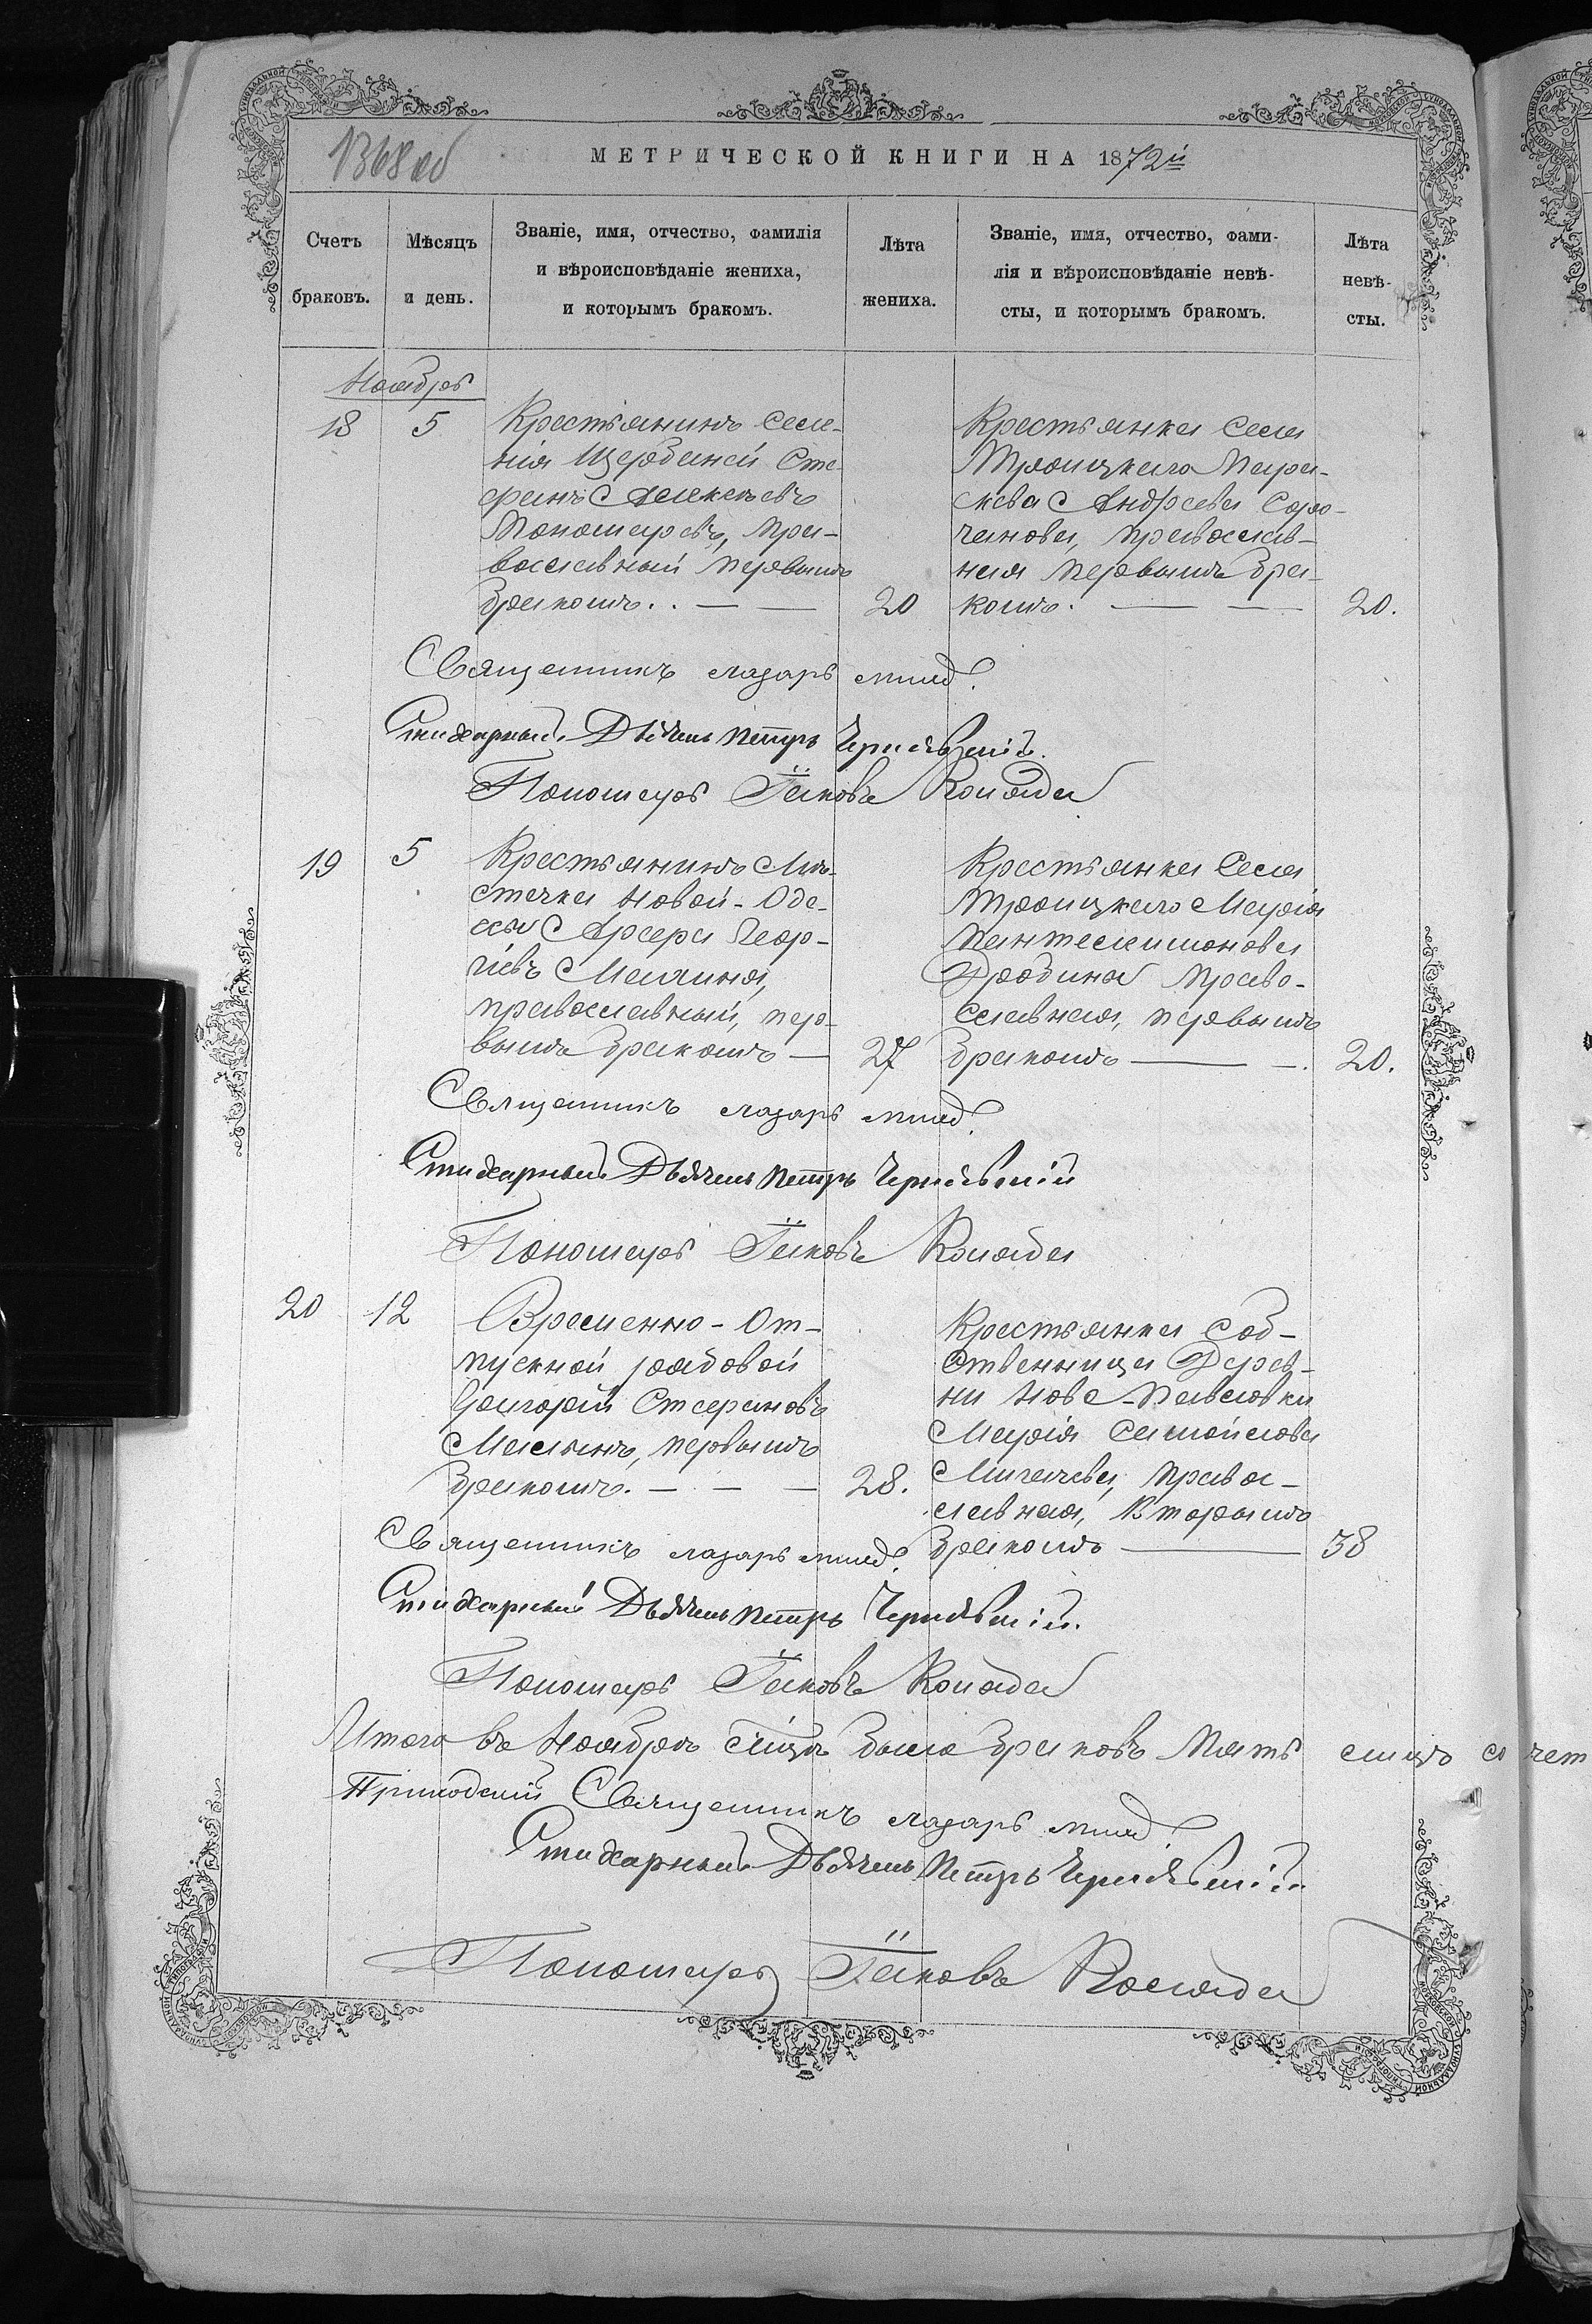 1368 об
МЕТРИЧЕСКОЙ КНИГИ НА 1872й
Счетъ браковъ.
Мѣсяцъ и день.
Званіе, имя, отчество, фамилія
и вѣроисповѣданіе жениха,
и которымъ бракомъ.
Лѣта жениха.
Званіе, имя, отчество, фами-
лія и вѣроисповѣданіе невѣ-
сты, и которымъ бракомъ.
Лѣта невѣ-
сты.
Ноабрь
18 5
Крестьянинъ Селе-
нія Щербаней Сте-
фанъ Алексѣевъ
Пономаревъ, Пра-
вославный первымъ
бракомъ. 20
Крестьянка Села
Троицкаго Пара-
скева Андреева Соро-
чанова, православ-
ная первымъ бра-
комъ. 20.
Священникъ Лазарь
Стихарный Дьячекъ Петръ Чернявскій
Пономарь Іаковъ Коляда
19 5
Крестьянинъ Мѣ-
стечка Новой-Оде-
ссы Геор-
гіевъ
православный, пер-
вымъ бракомъ 27
Крестьянка Села
Троицкаго Марія
Пантелеимонова
Дробина Право-
славная, первымъ
бракомъ 20.
Священникъ Лазарь
Стихарный Дьячекъ Петръ Чернявскій
Пономарь Іаковъ Коляда
20 12
Временно-От-
пускной рядовой
Григорій Стефановъ
первымъ
бракомъ. 28.
Крестьянка Соб-
ственница Дерев-
ни Ново-Павловки
Марія Самойлова
Михачева, Право-
славная, Вторымъ
бракомъ 38
Священникъ Лазарь
Стихарный Дьячекъ Петръ Чернявскій.
Пономарь Іаковъ Коляда
Итого въ Ноабрѣ мѣцѣ было браковъ Пять
Приходскій Священникъ Лазарь
Стихарный Дьячекъ Петръ Чернявскій
Пономарь Іаковъ Коляда